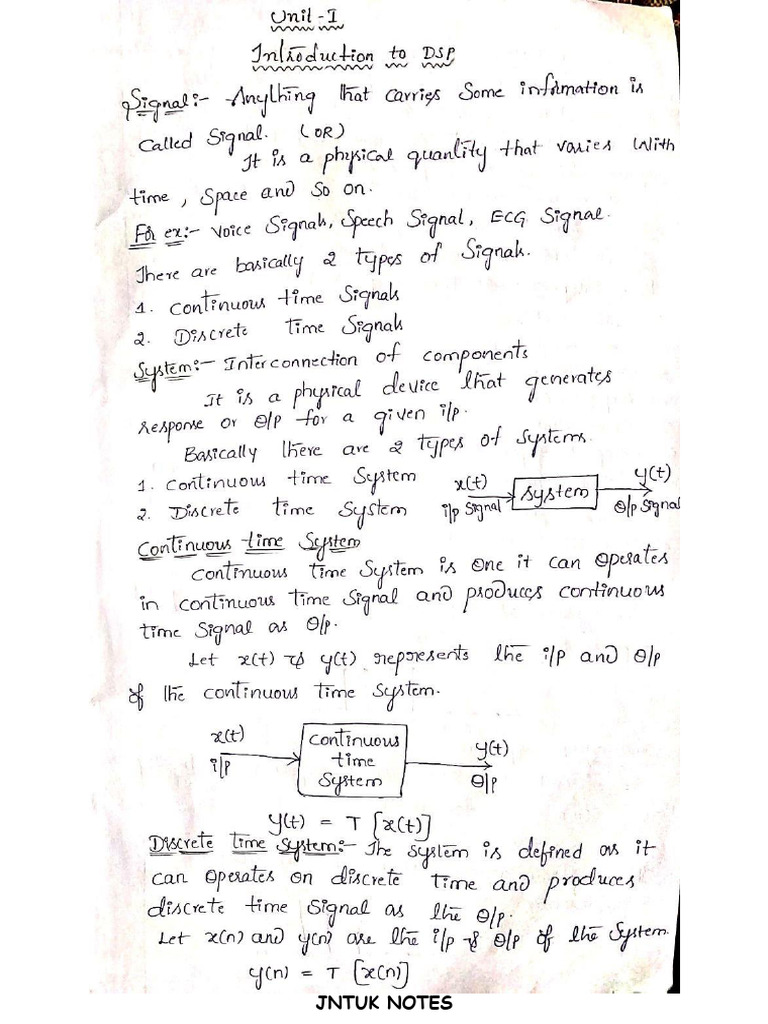 Unit-I
Introduction to DSP
Signal:- Anything that carries some information is
called signal. (OR)
It is a physical quantity that varies with
time, space and so on.
For ex:- Voice Signals, Speech Signal, ECG Signal.
There are basically 2 types of Signals.
1. Continuous time Signals
2. Discrete time Signals
System:- Interconnection of components
It is a physical device that generates
response or o/p for a given i/p.
Basically there are 2 types of systems.
1. Continuous time System
2. Discrete time System
x(t) System y(t)
i/p signal o/p signal
Continuous time System
Continuous time System is one it can operates
in continuous time signal and produces continuous
time signal as o/p.
Let x(t) & y(t) represents the i/p and o/p
of the continuous time system.
x(t)
i/p
Continuous
time
System
y(t)
o/p
y(t) = T [x(t)]
Discrete time System:- The system is defined as it
can operates on discrete time and produces
discrete time signal as the o/p.
Let x(n) and y(n) are the i/p & o/p of the System.
y(n) = T [x(n)]
JNTUK NOTES